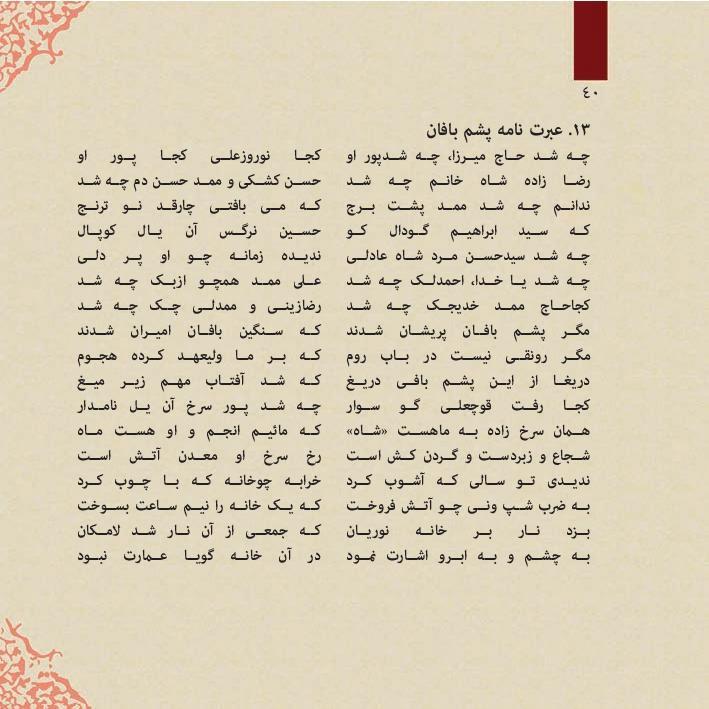 ٤٠
۱۳. عبرت نامه پشم بافان
چه شد حاج میرزا، چه شدپور او کجا نوروزعلی کجا پور او
رضا زاده شاه خانم چه شد حسن کشکی و ممد حسن دم چه شد
ندانم چه شد ممد پشت برج که می بافتی چارقد نو ترنج
که سید ابراهیم گودال کو حسین نرگس آن یال کوپال
چه شد سیدحسن مرد شاه عادلی ندیده زمانه چو او پر دلی
چه شد یا خدا، احمدلک چه شد علی ممد همچو ازبک چه شد
کجاحاج ممد خدیجک چه شد رضازینی و ممدلی چک چه شد
مگر پشم بافان پریشان شدند که سنگین بافان امیران شدند
مگر رونقی نیست در باب روم که بر ما ولیعهد کرده هجوم
دریغا از این پشم بافی دریغ که شد آفتاب مهم زیر میغ
کجا رفت قوچعلی گو سوار چه شد پور سرخ آن یل نامدار
همان سرخ زاده به ماهست «شاه» که مائیم انجم و او هست ماه
شجاع و زبردست و گردن کش است رخ سرخ او معدن آتش است
ندیدی تو سالی که آشوب کرد خرابه چوخانه که با چوب کرد
به ضرب شپ ونی چو آتش فروخت که یک خانه را نیم ساعت بسوخت
بزد نار بر خانه نوریان که جمعی از آن نار شد لامکان
به چشم و به ابرو اشارت نمود در آن خانه گویا عمارت نبود